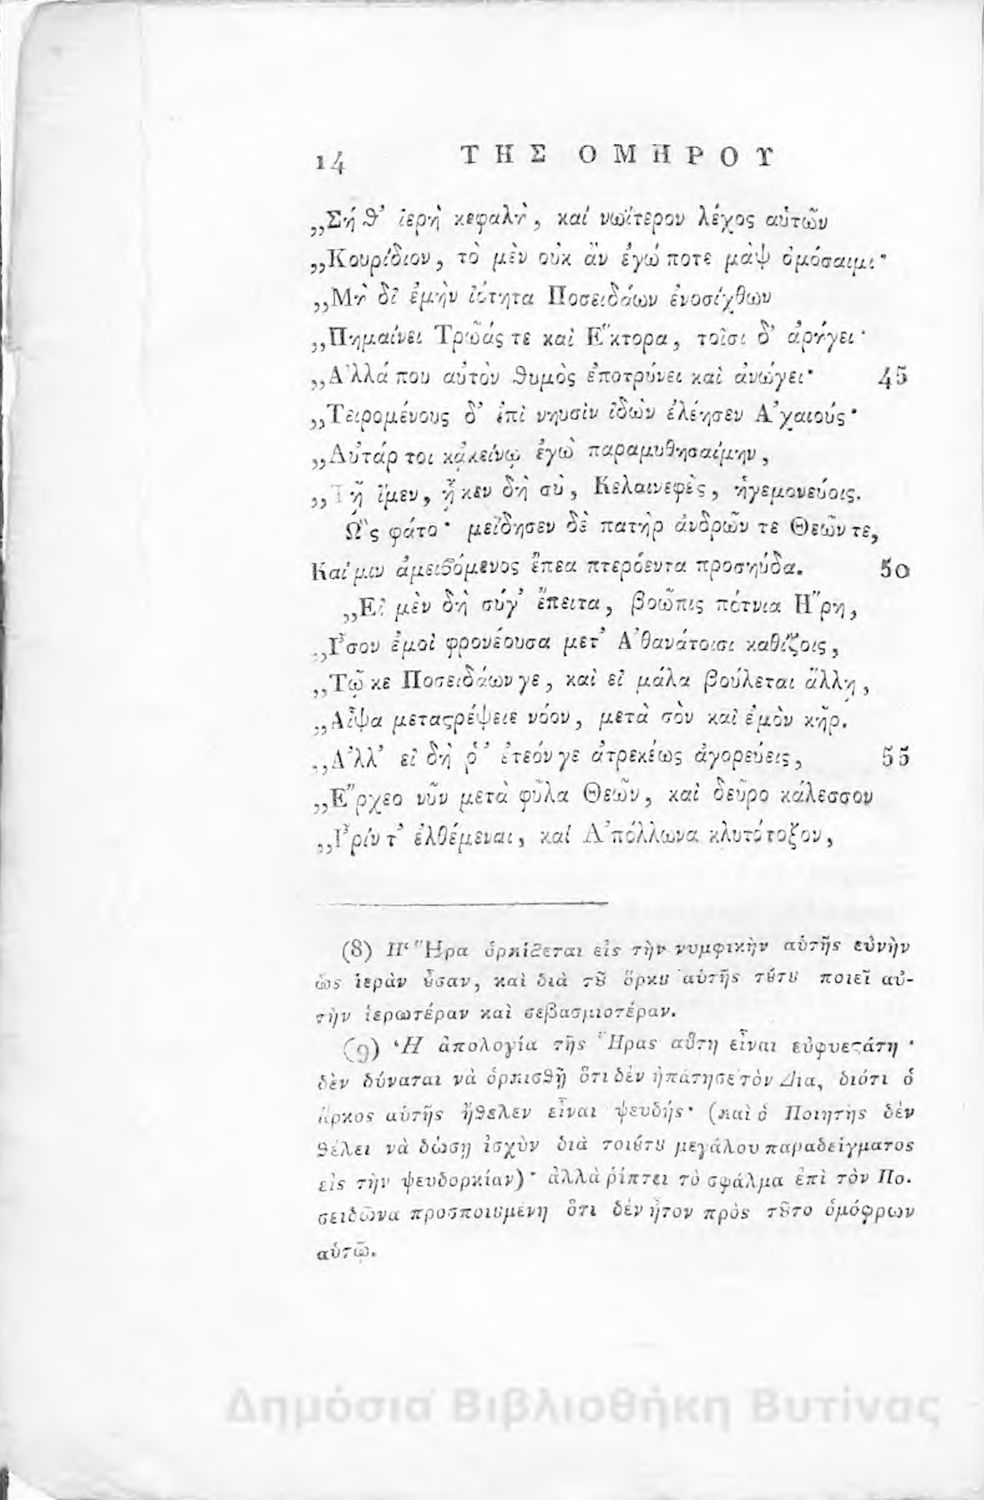 14 ΤΗΣ ΟΜΗΡΟΥ
„Σή θ᾽ ἱερὴ κεφαλὴ, καί νωΐτερον λέχος αὐτῶν
„Κουρίδιον, τὸ μὲν οὐκ ἂν ἐγώ ποτε μὰψ ὀμόσαιμι·
„Μὴ δι᾽ ἐμὴν ἰότητα Ποσειδάων ἐνοσίχθων
„Πημαίνει Τρῶάς τε καὶ Ἕκτορα, τοῖσι δ᾽ ἀρήγει·
„Ἀλλά που αὐτὸν θυμὸς ἐποτρύνει καὶ ἀνώγει· 45
„Τειρομένους δ᾽ ἐπὶ νηυσὶν ἰδὼν ἐλέησεν Ἀχαιούς·
„Αὐτάρ τοι κᾀκείνῳ ἐγὼ παραμυθησαίμην,
„Τῇ ἴμεν, ᾗ κεν δὴ σὺ, Κελαινεφὲς, ἡγεμονεύοις.
Ὣς φάτο· μείδησεν δὲ πατὴρ ἀνδρῶν τε Θεῶν τε,
Καί μιν ἀμειβόμενος ἔπεα πτερόεντα προσηύδα. 50
„Εἰ μὲν δὴ σύγ᾽ ἔπειτα, βοῶπις πότνια Ἥρη,
„Ἶσον ἐμοὶ φρονέουσα μετ᾽ Ἀθανάτοισι καθίζοις,
„Τῷ κε Ποσειδάων γε, καὶ εἰ μάλα βούλεται ἄλλῃ,
„Αἶψα μεταϛρέψειε νόον, μετὰ σὸν καὶ ἐμὸν κῆρ.
„Ἀλλ᾽ εἰ δή ῥ᾽ ἐτεόν γε ἀτρεκέως ἀγορεύεις, 55
„Ἔρχεο νῦν μετὰ φῦλα Θεῶν, καὶ δεῦρο κάλεσσον
„Ἶρίν τ᾽ ἐλθέμεναι, καί Ἀπόλλωνα κλυτότοξον,
(8) Ἡ Ἥρα ὁρκίζεται εἰς τὴν νυμφικὴν αὐτῆς εὐνὴν
ὡς ἱερὰν ȣ̓͂σαν, καὶ διὰ τȣ͂ ὅρκȣ αὐτῆς τȣ́τȣ ποιεῖ αὐ-
τὴν ἱερωτέραν καὶ σεβασμιοτέραν.
(9) Ἡ ἀπολογία τῆς Ἥρας αὕτη εἶναι εὐφυεϛάτη·
δὲν δύναται νὰ ὁρκισθῇ ὅτι δὲν ἠπάτησε τὸν Δία, διότι ὁ
ὅρκος αὐτῆς ἤθελεν εἶναι ψευδής· (καὶ ὁ Ποιητὴς δὲν
θέλει νὰ δώσῃ ἰσχὺν διὰ τοιȣ́τȣ μεγάλου παραδείγματος
εἰς τὴν ψευδορκίαν)· ἀλλὰ ῥίπτει τὸ σφάλμα ἐπὶ τὸν Πο-
σειδῶνα προσποιουμένη ὅτι δὲν ἦτον πρὸς τȣ͂το ὁμόφρων
αὐτῷ.
Δημόσια Βιβλιοθήκη Βυτίνας